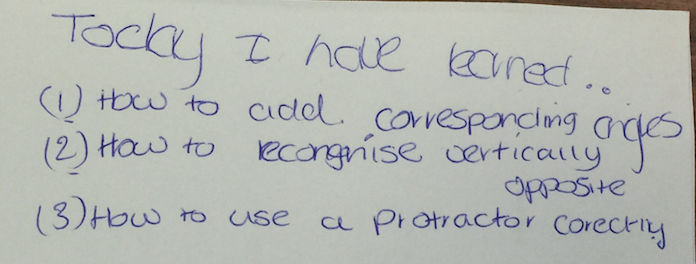 Today I have learned..
(1) How to add corresponding angles
(2) How to recorgnise vertically
opposite
(3) How to use a protractor corectly